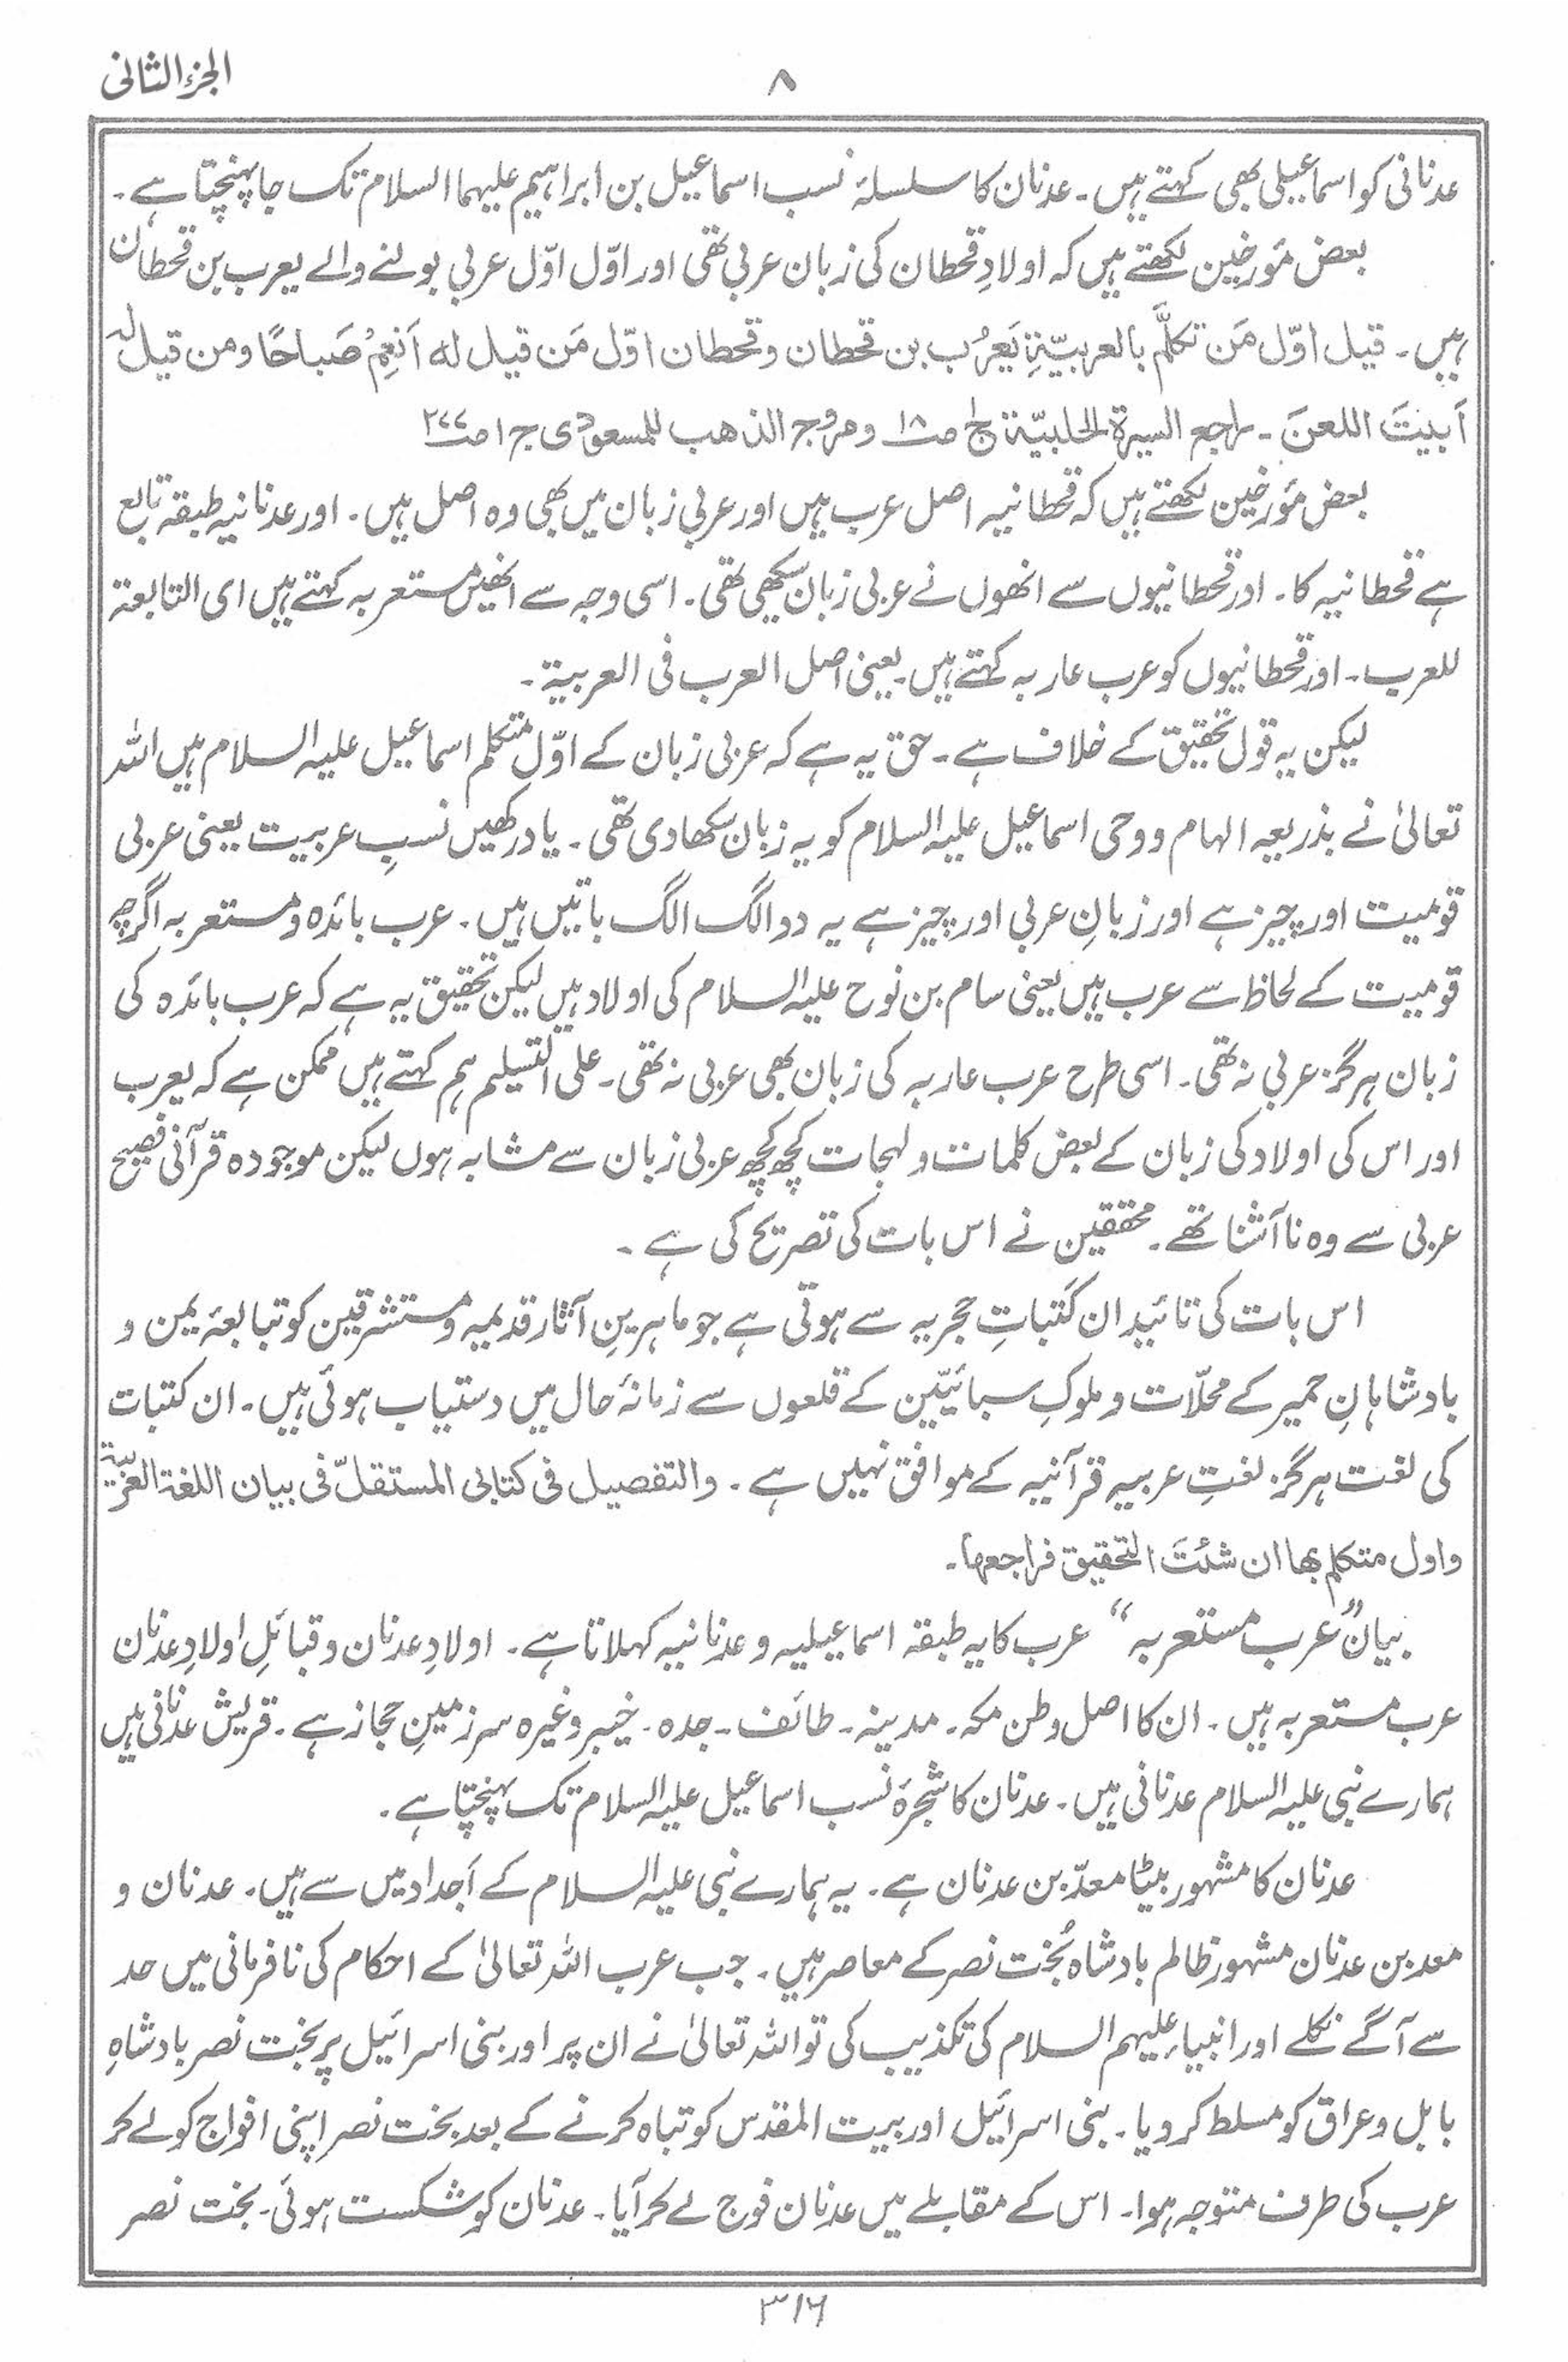 الجزء الثانی
٨
عدنانی کو اسماعیلی بھی کہتے ہیں۔ عدنان کا سلسلۂ نسب اسماعیل بن ابراہیم علیہما السلام تک جا پہنچتا ہے۔
بعض مؤرخین لکھتے ہیں کہ اولادِ قحطان کی زبان عربی تھی اور اوّل اوّل عربی بولنے والے یعرب بن قحطان
ہیں۔ قیل اوّل مَن تکلَّم بالعربیّۃِ یَعرُب بن قحطان وقحطان اوّل مَن قیل لہ اَنعِمْ صَباحًا ومن قیل لہ
اَبیتَ اللعنَ۔ راجع السیرۃ الحلبیّۃ ج۱ ص۱۸ ومروج الذھب للمسعودی ج۱ ص۲۷۷
بعض مؤرخین لکھتے ہیں کہ قحطانیہ اصل عرب ہیں اور عربی زبان میں بھی وہ اصل ہیں۔ اور عدنانیہ طبقہ تابع
ہے قحطانیہ کا۔ اور قحطانیوں سے انھوں نے عربی زبان سیکھی تھی۔ اسی وجہ سے انھیں مستعربہ کہتے ہیں ای التابعۃ
للعرب۔ اور قحطانیوں کو عرب عاربہ کہتے ہیں۔ یعنی اصل العرب فی العربیۃ۔
لیکن یہ قول تحقیق کے خلاف ہے۔ حق یہ ہے کہ عربی زبان کے اوّل متکلم اسماعیل علیہ السلام ہیں اللہ
تعالیٰ نے بذریعہ الہام ووحی اسماعیل علیہ السلام کو یہ زبان سکھادی تھی۔ یاد رکھیں نسبِ عربیت یعنی عربی
قومیت اور چیز ہے اور زبانِ عربی اور چیز ہے یہ دو الگ الگ باتیں ہیں۔ عرب بائدہ ومستعربہ اگرچہ
قومیت کے لحاظ سے عرب ہیں یعنی سام بن نوح علیہ السلام کی اولاد ہیں لیکن تحقیق یہ ہے کہ عرب بائدہ کی
زبان ہرگز عربی نہ تھی۔ اسی طرح عرب عاربہ کی زبان بھی عربی نہ تھی۔ علی التسلیم ہم کہتے ہیں ممکن ہے کہ یعرب
اور اس کی اولاد کی زبان کے بعض کلمات ولہجات کچھ کچھ عربی زبان سے مشابہ ہوں لیکن موجودہ قرآنی فصیح
عربی سے وہ ناآشنا تھے۔ محققین نے اس بات کی تصریح کی ہے۔
اس بات کی تائید ان کتباتِ حجریہ سے ہوتی ہے جو ماہرینِ آثار قدیمیہ ومستشرقین کو تبابعۂ یمن و
بادشاہانِ حمیر کے محلّات وملوکِ سبائیّین کے قلعوں سے زمانۂ حال میں دستیاب ہوئی ہیں۔ ان کتبات
کی لغت ہرگز لغتِ عربیہ قرآنیہ کے موافق نہیں ہے۔ والتفصیل فی کتابی المستقلّ فی بیان اللغۃ العربیّۃ
واول متکلم بھا ان شئتَ التحقیق فراجعھا۔
بیان "عرب مستعربہ" عرب کا یہ طبقہ اسماعیلیہ وعدنانیہ کہلاتا ہے۔ اولادِ عدنان وقبائلِ اولادِ عدنان
عرب مستعربہ ہیں۔ ان کا اصل وطن مکہ۔ مدینہ۔ طائف۔ جدہ۔ خیبر وغیرہ سرزمینِ حجاز ہے۔ قریش عدنانی ہیں
ہمارے نبی علیہ السلام عدنانی ہیں۔ عدنان کا شجرۂ نسب اسماعیل علیہ السلام تک پہنچتا ہے۔
عدنان کا مشہور بیٹا معدّ بن عدنان ہے۔ یہ ہمارے نبی علیہ السلام کے اَجداد میں سے ہیں۔ عدنان و
معد بن عدنان مشہور ظالم بادشاہ بُخت نصر کے معاصر ہیں۔ جب عرب اللہ تعالیٰ کے احکام کی نافرمانی میں حد
سے آگے نکلے اور انبیاء علیہم السلام کی تکذیب کی تو اللہ تعالیٰ نے ان پر اور بنی اسرائیل پر بخت نصر بادشاہِ
بابل وعراق کو مسلط کر دیا۔ بنی اسرائیل اور بیت المقدس کو تباہ کرنے کے بعد بخت نصر اپنی افواج کو لے کر
عرب کی طرف متوجہ ہوا۔ اس کے مقابلے میں عدنان فوج لے کر آیا۔ عدنان کو شکست ہوئی۔ بخت نصر
۳۱۶